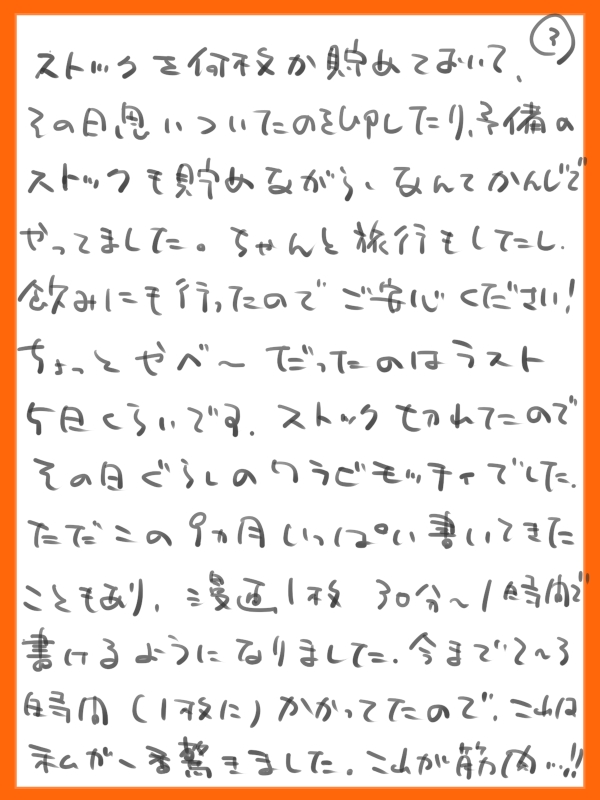 3
ストックを何枚か貯めておいて、
その日思いついたのを印したり、予備の
ストックも貯めながら、なんてかんじで
やってました。ちゃんと旅行もしてたし.
飲みにも行ったのでご安心ください!
ちょっとやべ〜だったのはラスト
5日くらいです. ストックもかれてたので
その日ぐらしのワラビモッチィでした.
ただこの9ヵ月いっぱい書いてきた
こともあり、漫画1枚 30分〜1時間で
書けるようになりました. 今まで2〜3
時間(1枚に)かかってたので、これは
私が一番驚きました. これが筋肉…!!